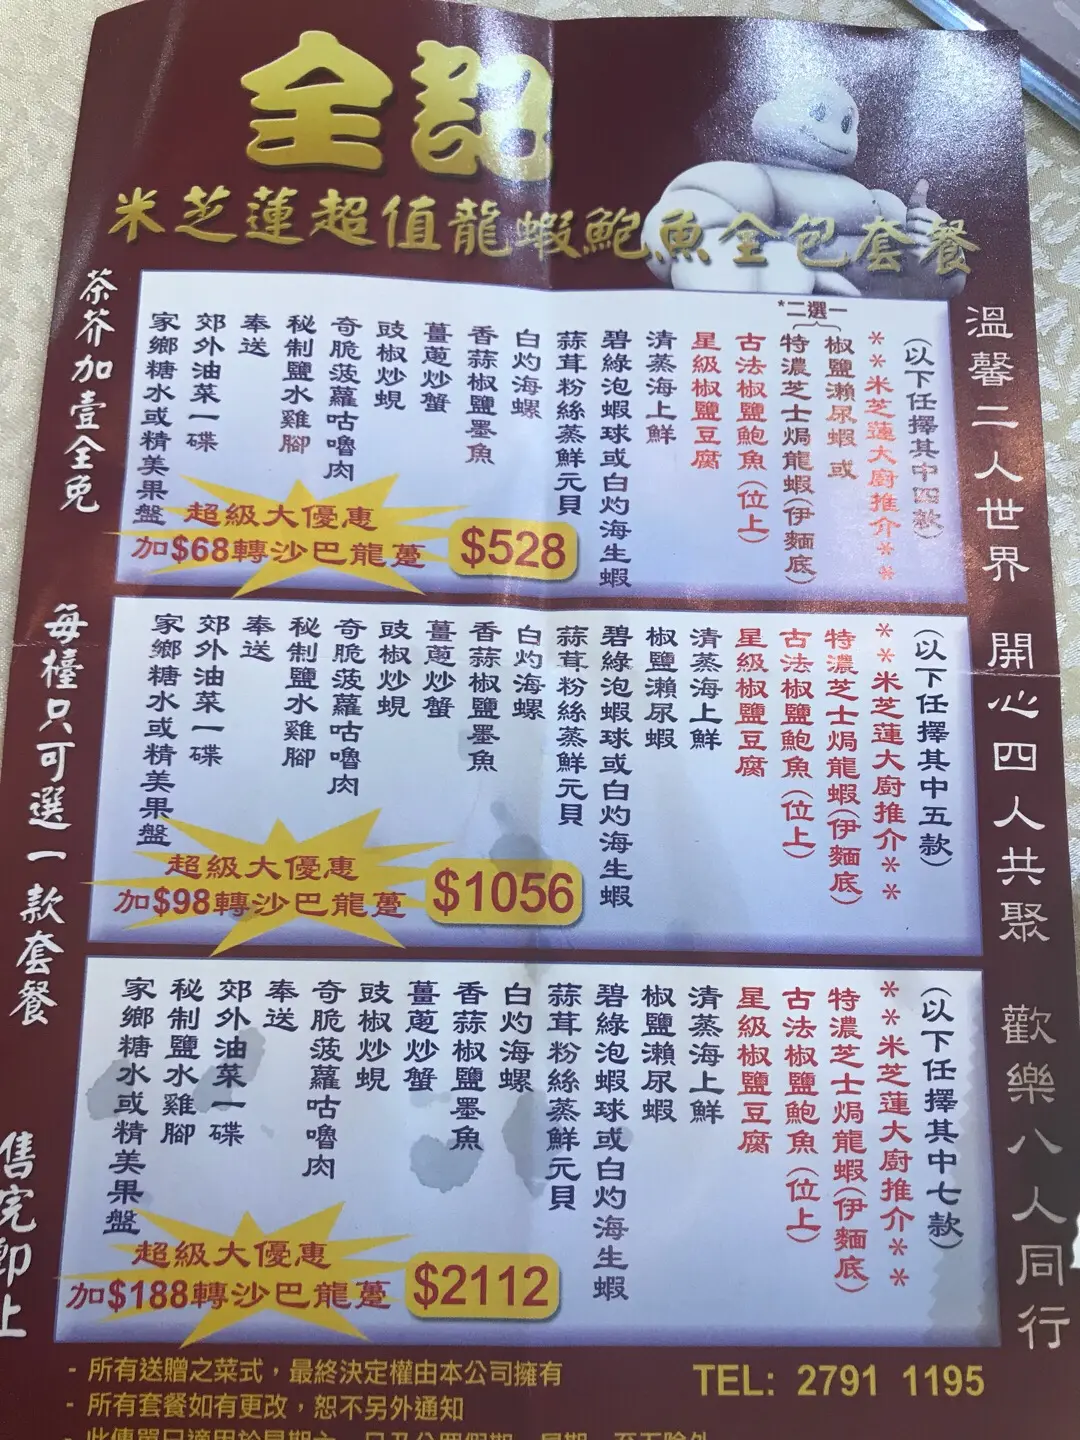 全記
米芝蓮超值龍蝦鮑魚全包套餐
溫馨二人世界
開心四人共聚
歡樂八人同行
(以下任擇其中四款)
**米芝蓮大廚推介**
*二選一
椒鹽瀨尿蝦 或
特濃芝士焗龍蝦(伊麵底)
古法椒鹽鮑魚(位上)
星級椒鹽豆腐
清蒸海上鮮
碧綠泡蝦球或白灼海生蝦
蒜茸粉絲蒸鮮元貝
白灼海螺
香蒜椒鹽墨魚
薑蔥炒蟹
豉椒炒蜆
奇脆菠蘿咕嚕肉
秘制鹽水雞腳
奉送
郊外油菜一碟
家鄉糖水或精美果盤
超級大優惠
加$68轉沙巴龍躉
$528
(以下任擇其中五款)
**米芝蓮大廚推介**
特濃芝士焗龍蝦(伊麵底)
古法椒鹽鮑魚(位上)
星級椒鹽豆腐
清蒸海上鮮
椒鹽瀨尿蝦
碧綠泡蝦球或白灼海生蝦
蒜茸粉絲蒸鮮元貝
白灼海螺
香蒜椒鹽墨魚
薑蔥炒蟹
豉椒炒蜆
奇脆菠蘿咕嚕肉
秘制鹽水雞腳
奉送
郊外油菜一碟
家鄉糖水或精美果盤
超級大優惠
加$98轉沙巴龍躉
$1056
(以下任擇其中七款)
**米芝蓮大廚推介**
特濃芝士焗龍蝦(伊麵底)
古法椒鹽鮑魚(位上)
星級椒鹽豆腐
清蒸海上鮮
椒鹽瀨尿蝦
碧綠泡蝦球或白灼海生蝦
蒜茸粉絲蒸鮮元貝
白灼海螺
香蒜椒鹽墨魚
薑蔥炒蟹
豉椒炒蜆
奇脆菠蘿咕嚕肉
奉送
郊外油菜一碟
秘制鹽水雞腳
家鄉糖水或精美果盤
超級大優惠
加$188轉沙巴龍躉
$2112
茶芥加壹全免
每檯只可選一款套餐
售完即上
- 所有送贈之菜式，最終決定權由本公司擁有
- 所有套餐如有更改，恕不另外通知
TEL: 2791 1195